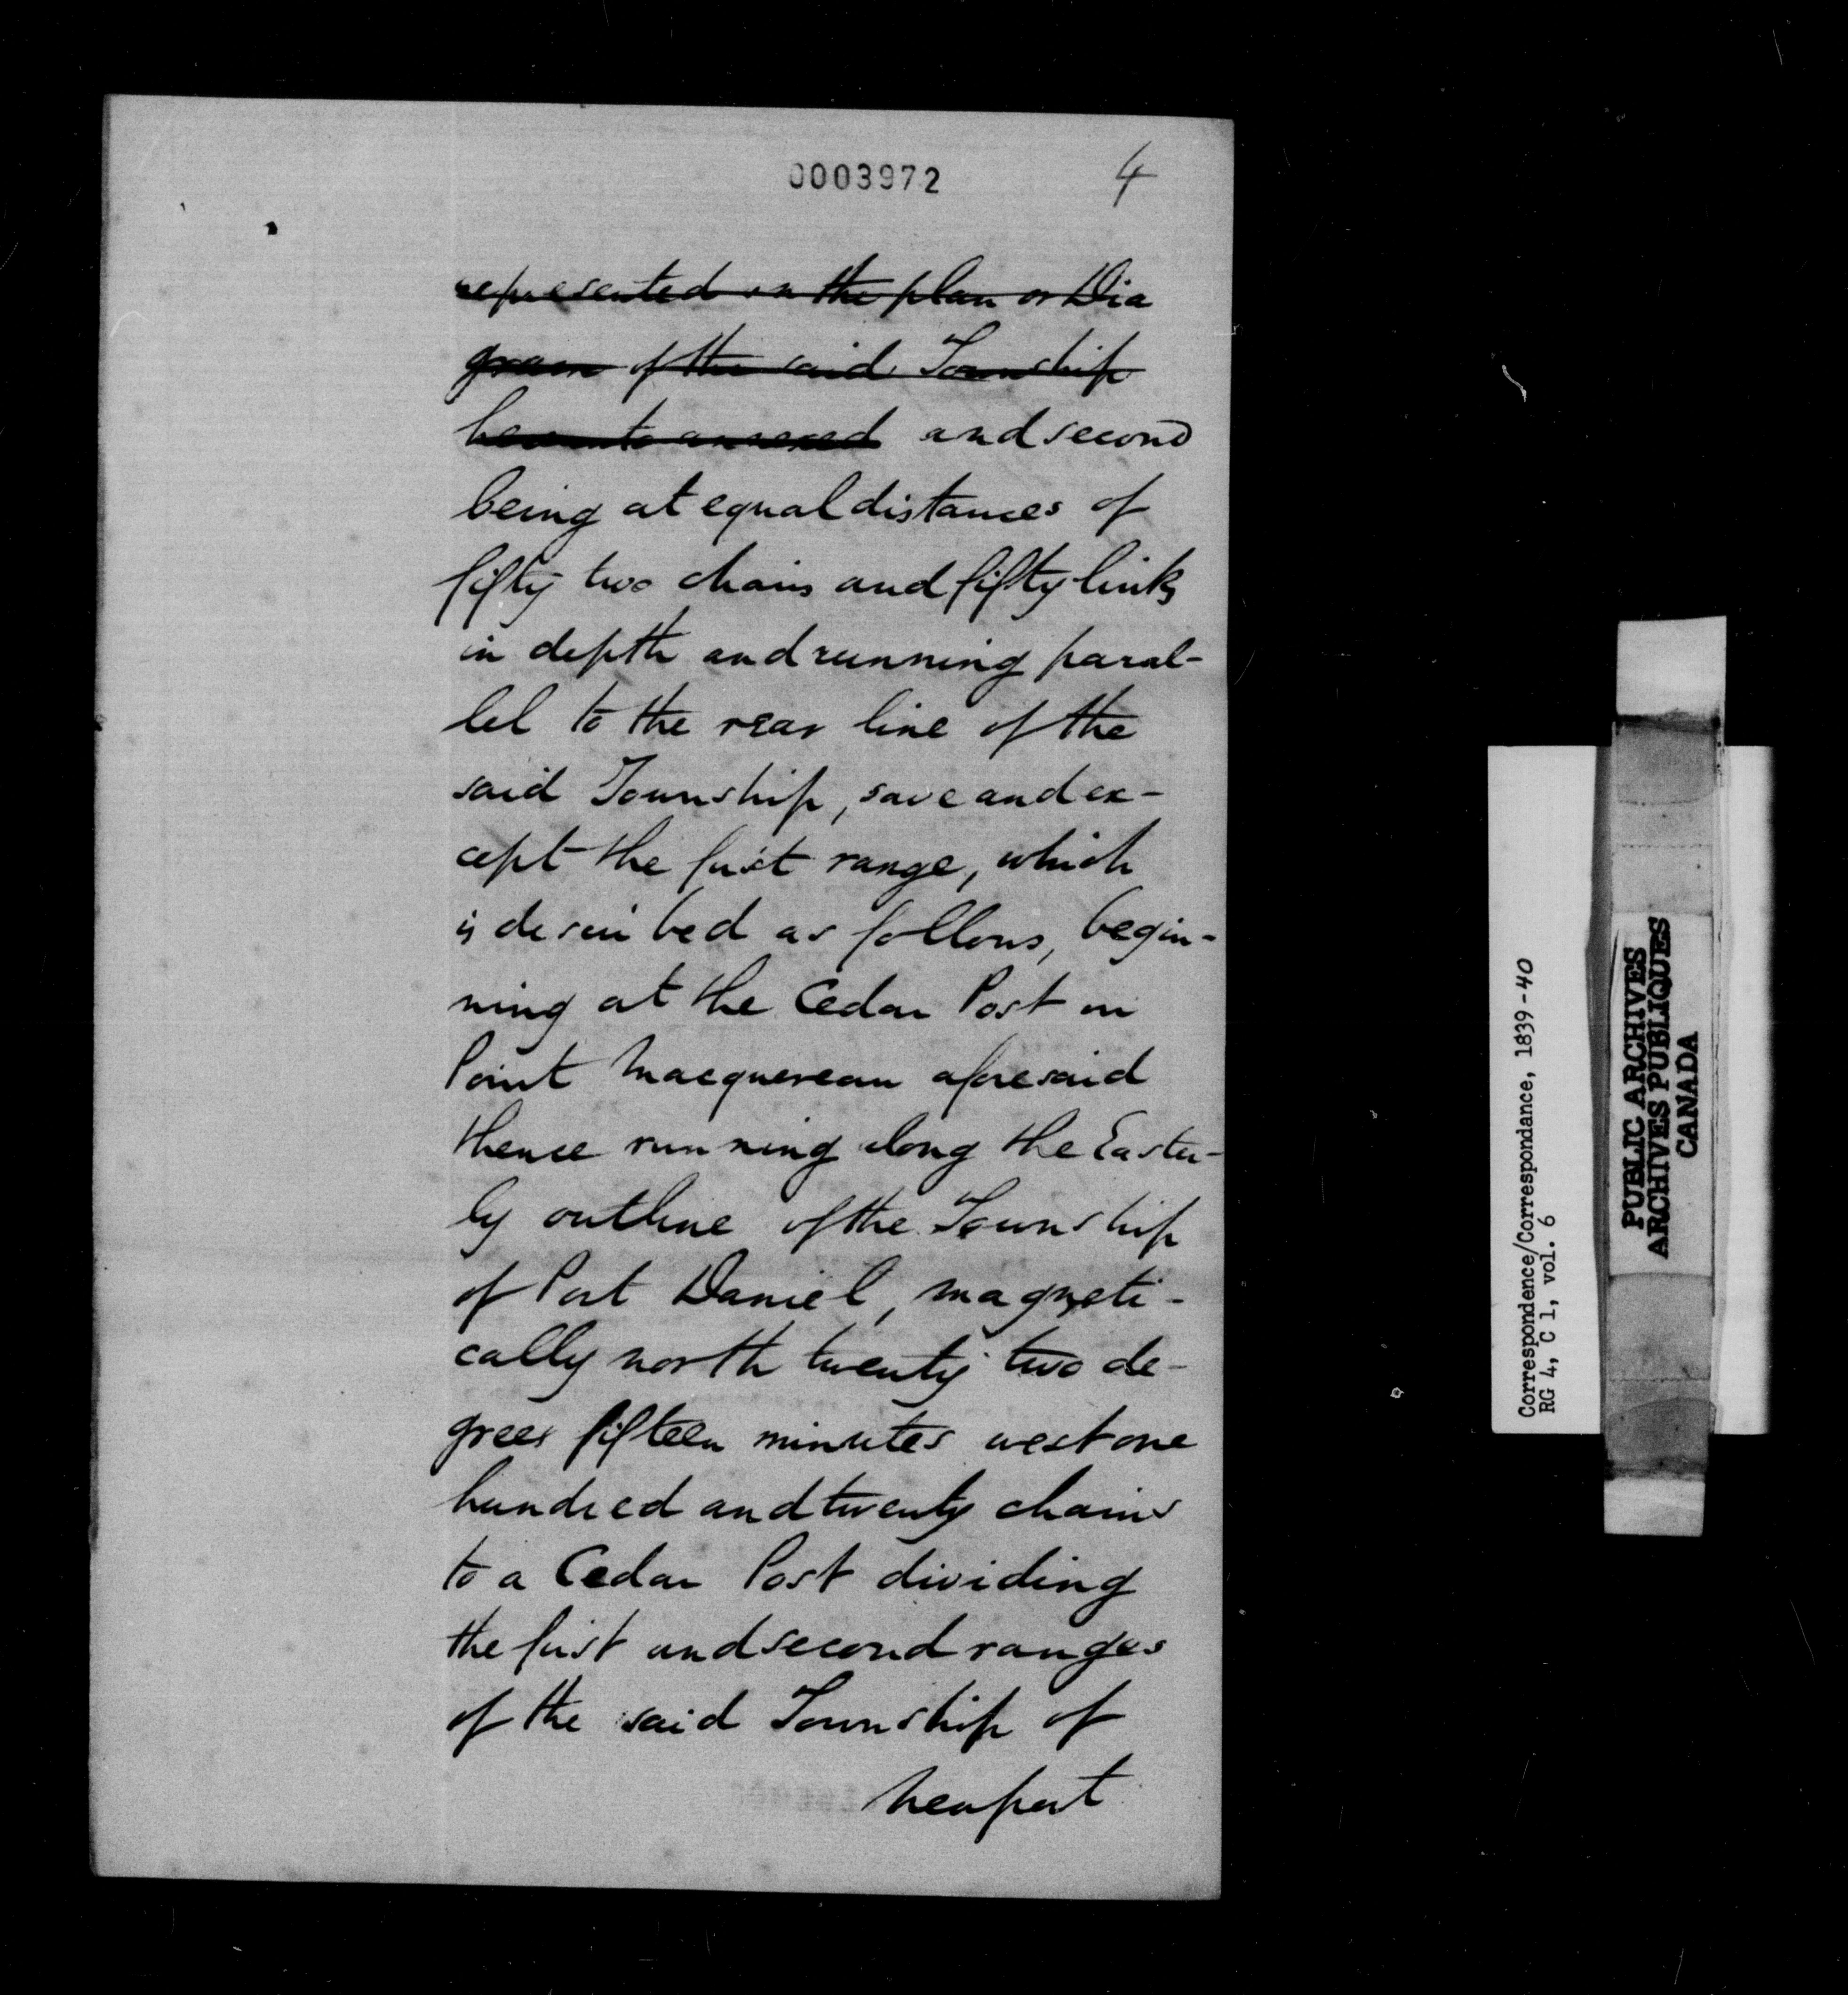 0003972
4
represented on the plan or Dia
gram of the said Township
hereunto annexed and second
being at equal distances of
fifty two chains and fifty links
in depth and running paral-
lel to the rear line of the
said Township, save and ex-
cept the first range, which
is described as follows, begin-
ning at the Cedar Post on
Point Macquereau aforesaid
thence running along the Easter-
ly outline of the Township
of Port Daniel, magneti-
cally north twenty two de-
grees fifteen minutes west one
hundred and twenty chains
to a Cedar Post dividing
the first and second ranges
of the said Township of
Newport
Correspondence/Correspondance, 1839-40
RG 4, C 1, vol. 6
PUBLIC ARCHIVES
ARCHIVES PUBLIQUES
CANADA